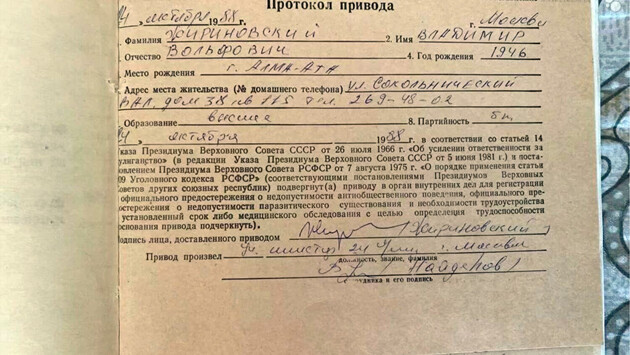 Протокол привода
14 октября 1988 г. г. Москва
1. Фамилия ЖИРИНОВСКИЙ 2. Имя ВЛАДИМИР
3. Отчество ВОЛЬФОВИЧ 4. Год рождения 1946
5. Место рождения г. АЛМА-АТА
6. Адрес места жительства (№ домашнего телефона) ул. СОКОЛЬНИЧЕСКИЙ
ВАЛ, дом 38 кв 115 тел. 269-48-02
7. Образование высшее 8. Партийность б/п.
14 октября 1988 г. в соответствии со статьей 14
Указа Президиума Верховного Совета СССР от 26 июля 1966 г. «Об усилении ответственности за
хулиганство» (в редакции Указа Президиума Верховного Совета СССР от 5 июня 1981 г.) и поста-
новлением Президиума Верховного Совета РСФСР от 7 августа 1975 г. «О порядке применения статьи
209 Уголовного кодекса РСФСР» (соответствующими постановлениями Президиумов Верховных
Советов других союзных республик) подвергнут(а) приводу в орган внутренних дел для регистрации
официального предостережения о недопустимости антиобщественного поведения, официального пре-
достережения о недопустимости паразитического существования и необходимости трудоустройства
в установленный срок либо медицинского обследования с целью определения трудоспособности
(основания привода подчеркнуть).
Подпись лица, доставленного приводом Жириновский
Привод произвел 24 г. Москвы
должность, звание, фамилия
Найденов
сотрудника и его подпись